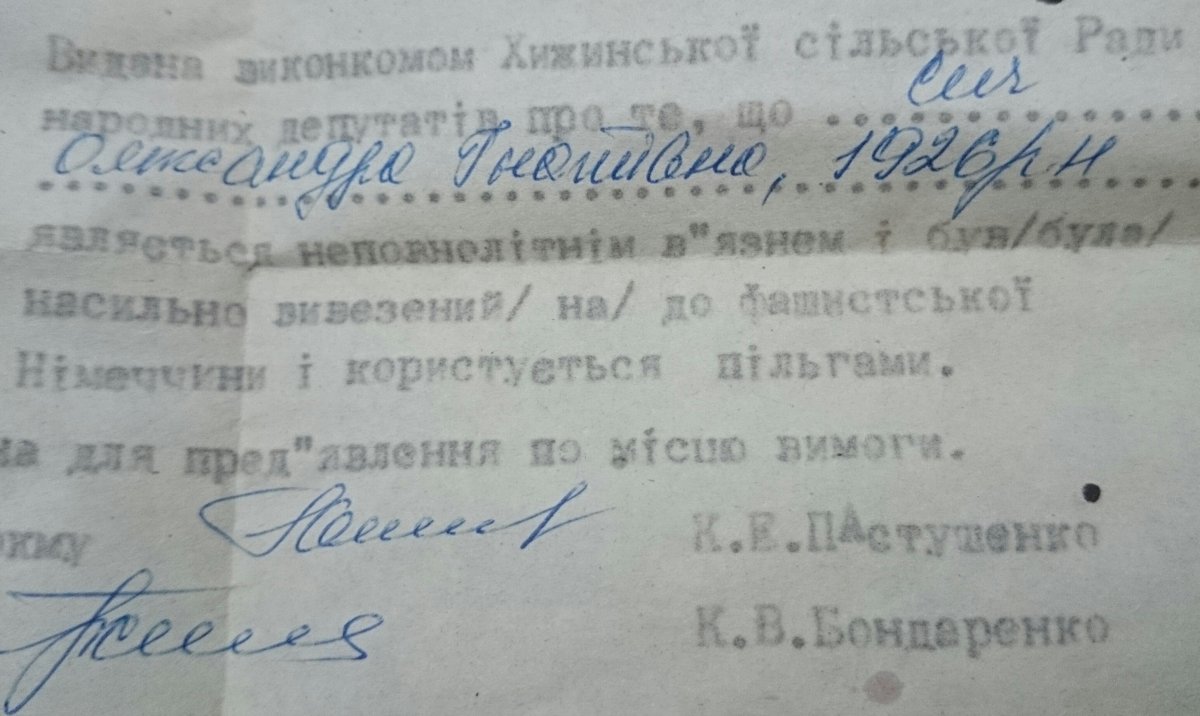 Видана виконкомом Хижинської сільської Ради
народних депутатів про те, що Сич
Олександра Гнатівна, 1926 р н
являється неповнолітнім в"язнем і був/була/
насильно вивезений/ на/ до фашистської
Німеччини і користується пільгами.
на для пред"явлення по місцю вимоги.
кму К.Е.ПАстушенко
К.В.Бондаренко